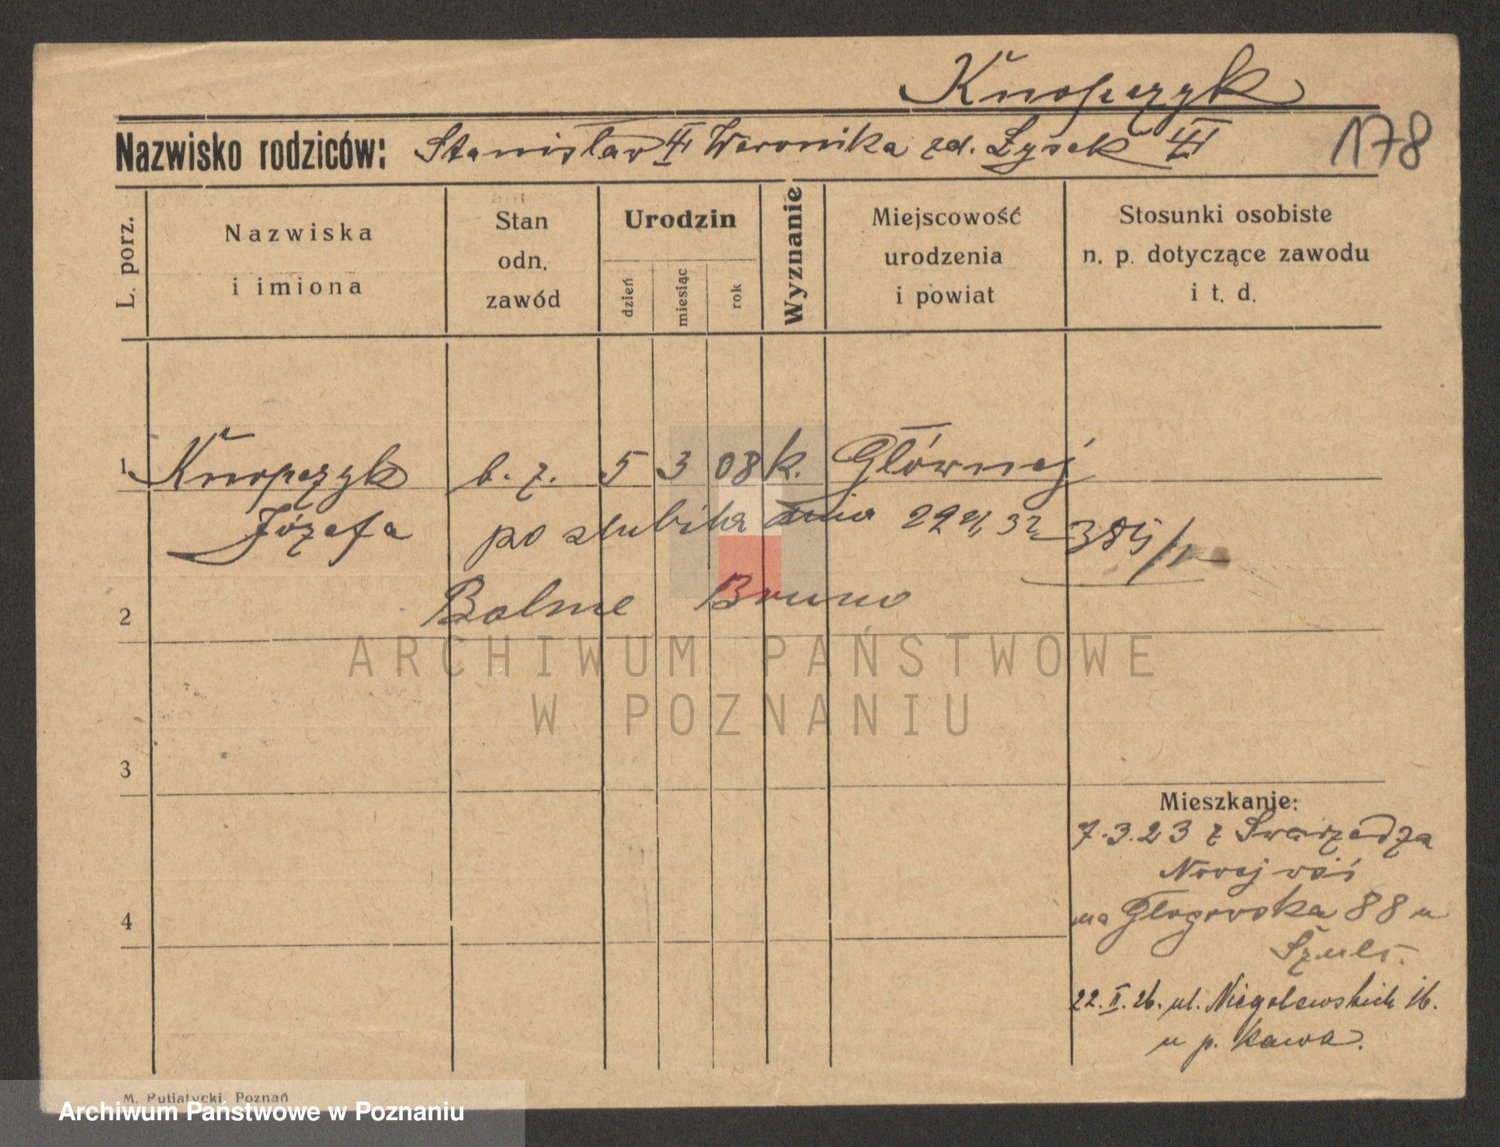 Knopczyk
Nazwisko rodziców: Stanisław Weronika zd. Łysek
178
L. porz.
Nazwiska
i imiona
Stan
odn.
zawód
Urodzin
dzień
miesiąc
rok
Wyznanie
Miejscowość
urodzenia
i powiat
Stosunki osobiste
n. p. dotyczące zawodu
i t. d.
1 Knopczyk b. z. 5 3 08 k. Głównej
Józefa poślubiła dnia 29 32 385
2 Bolme Bruno
ARCHIWUM PAŃSTWOWE
W POZNANIU
3
Mieszkanie:
7.3.23 z Swarzędza
Nowej wsi
4 na Głogowska 88 u
Szulc.
22.II.26. ul. Niegolewskich 16.
u p. Kawa.
M. Putiatycki, Poznań
Archiwum Państwowe w Poznaniu